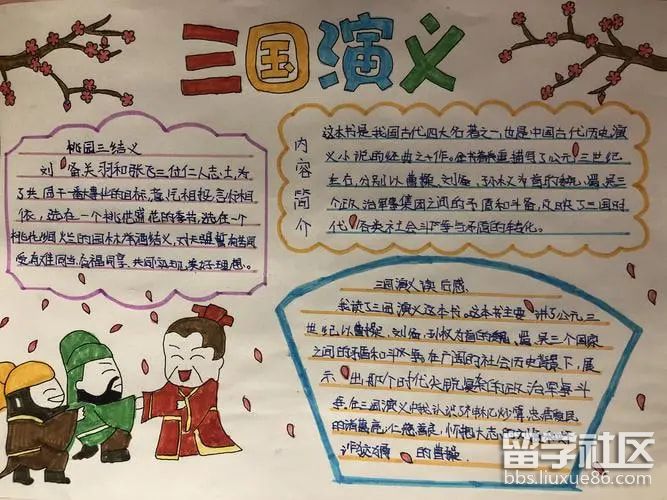 三国演义
桃园三结义
刘备关羽和张飞三位仁人志士,为
了共同干一番事业的目标,意气相投,言行相
依,选在一个桃花盛开的季节,选在一个
桃花灿烂的园林,举酒结义,对天盟誓,有苦同
受,有难同当,有福同享,共同实现美好理想。
内容简介
这本书是我国古代四大名著之一,也是中国古代历史演
义小说的经典之作。全书着重描写了公元三世纪
左右,分别以曹操、刘备、孙权为首的魏、蜀、吴三
个政治军事集团之间的矛盾和斗争,反映了三国时
代各类社会斗争与矛盾的转化。
三国演义读后感
我读了三国演义这本书,这本书主要讲了公元三
世纪以曹操、刘备、孙权为首的魏、蜀、吴三个国家
之间的矛盾和斗争,在广阔的社会历史背景下,展
示出那个时代尖锐复杂的政治军事斗
争,在三国演义中我认识了神机妙算忠君爱民
的诸葛亮,仁慈善良、怀抱大志的刘备
的曹操。
留学社区
bbs.liuxue86.com